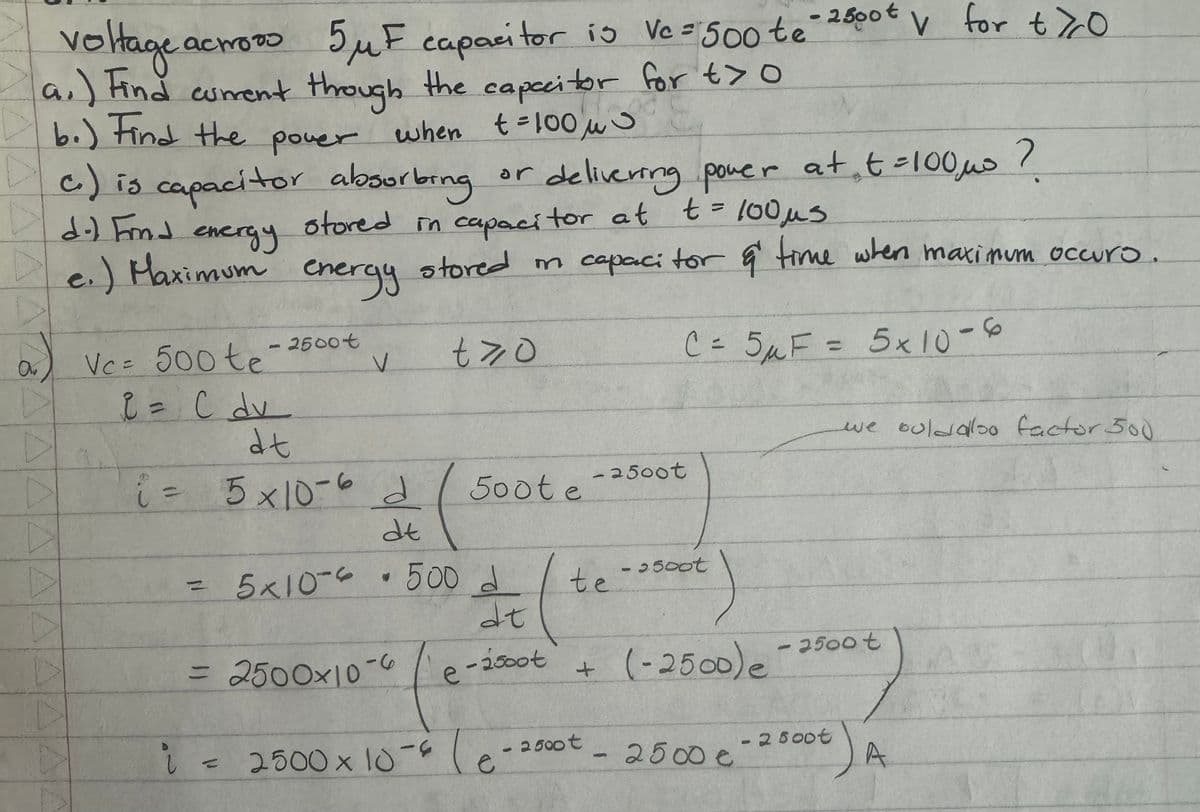 voltage across 5μF capacitor is Vc = 500 te^-2500t V for t ≥ 0
a.) Find current through the capacitor for t > 0
b.) Find the power when t = 100 μs
c.) is capacitor absorbing or delivering power at t = 100 μs ?
d.) Find energy stored in capacitor at t = 100 μs
e.) Maximum energy stored in capacitor & time when maximum occurs.
a.) Vc = 500 te^-2500t V t ≥ 0 C = 5μF = 5x10^-6
i = C dv/dt
we could also factor 500
i = 5 x10^-6 d/dt ( 500t e^-2500t )
= 5x10^-6 • 500 d/dt ( te^-2500t )
= 2500x10^-6 ( e^-2500t + (-2500)e^-2500t )
i = 2500 x 10^-6 ( e^-2500t - 2500 e^-2500t ) A